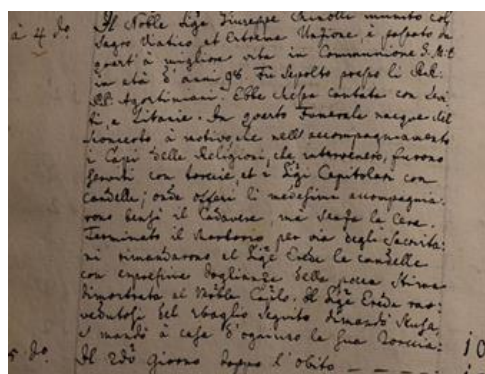 à 4 do. Il Noble Sigr Giuseppe munito col
Sagro Viatico et Estrema Unzione, è passato da
questa à miglior vita in Communione S. M. E
in età d'anni 98. Fù Sepolto presso li Rdi.
PP. Agostiniani. Ebbe Messa cantata con Levi-
ti, e Litanie. In questo Funerale nacque del
sconcerto à motivo che nell'accompagnamento
i Capi delle Religioni, che intervenero, furono
serviti con torcie, et i Sigri Capitolari con
candelle; onde offesi li medesimi accompagna-
rono bensì il Cadavere, ma senza la Cera.
Terminato il per via degli Sacrista-
ni rimandarono al Sigr Erede le candelle
con espressive doglianze della poca stima
dimostrata al Noble Ceto. Il Sigr Erede rav-
vedutosi del sbaglio seguito dimandò scusa,
e mandò à casa d'ogniuno la sua Torcia.
5 do. Il 2do giorno doppo l'obito